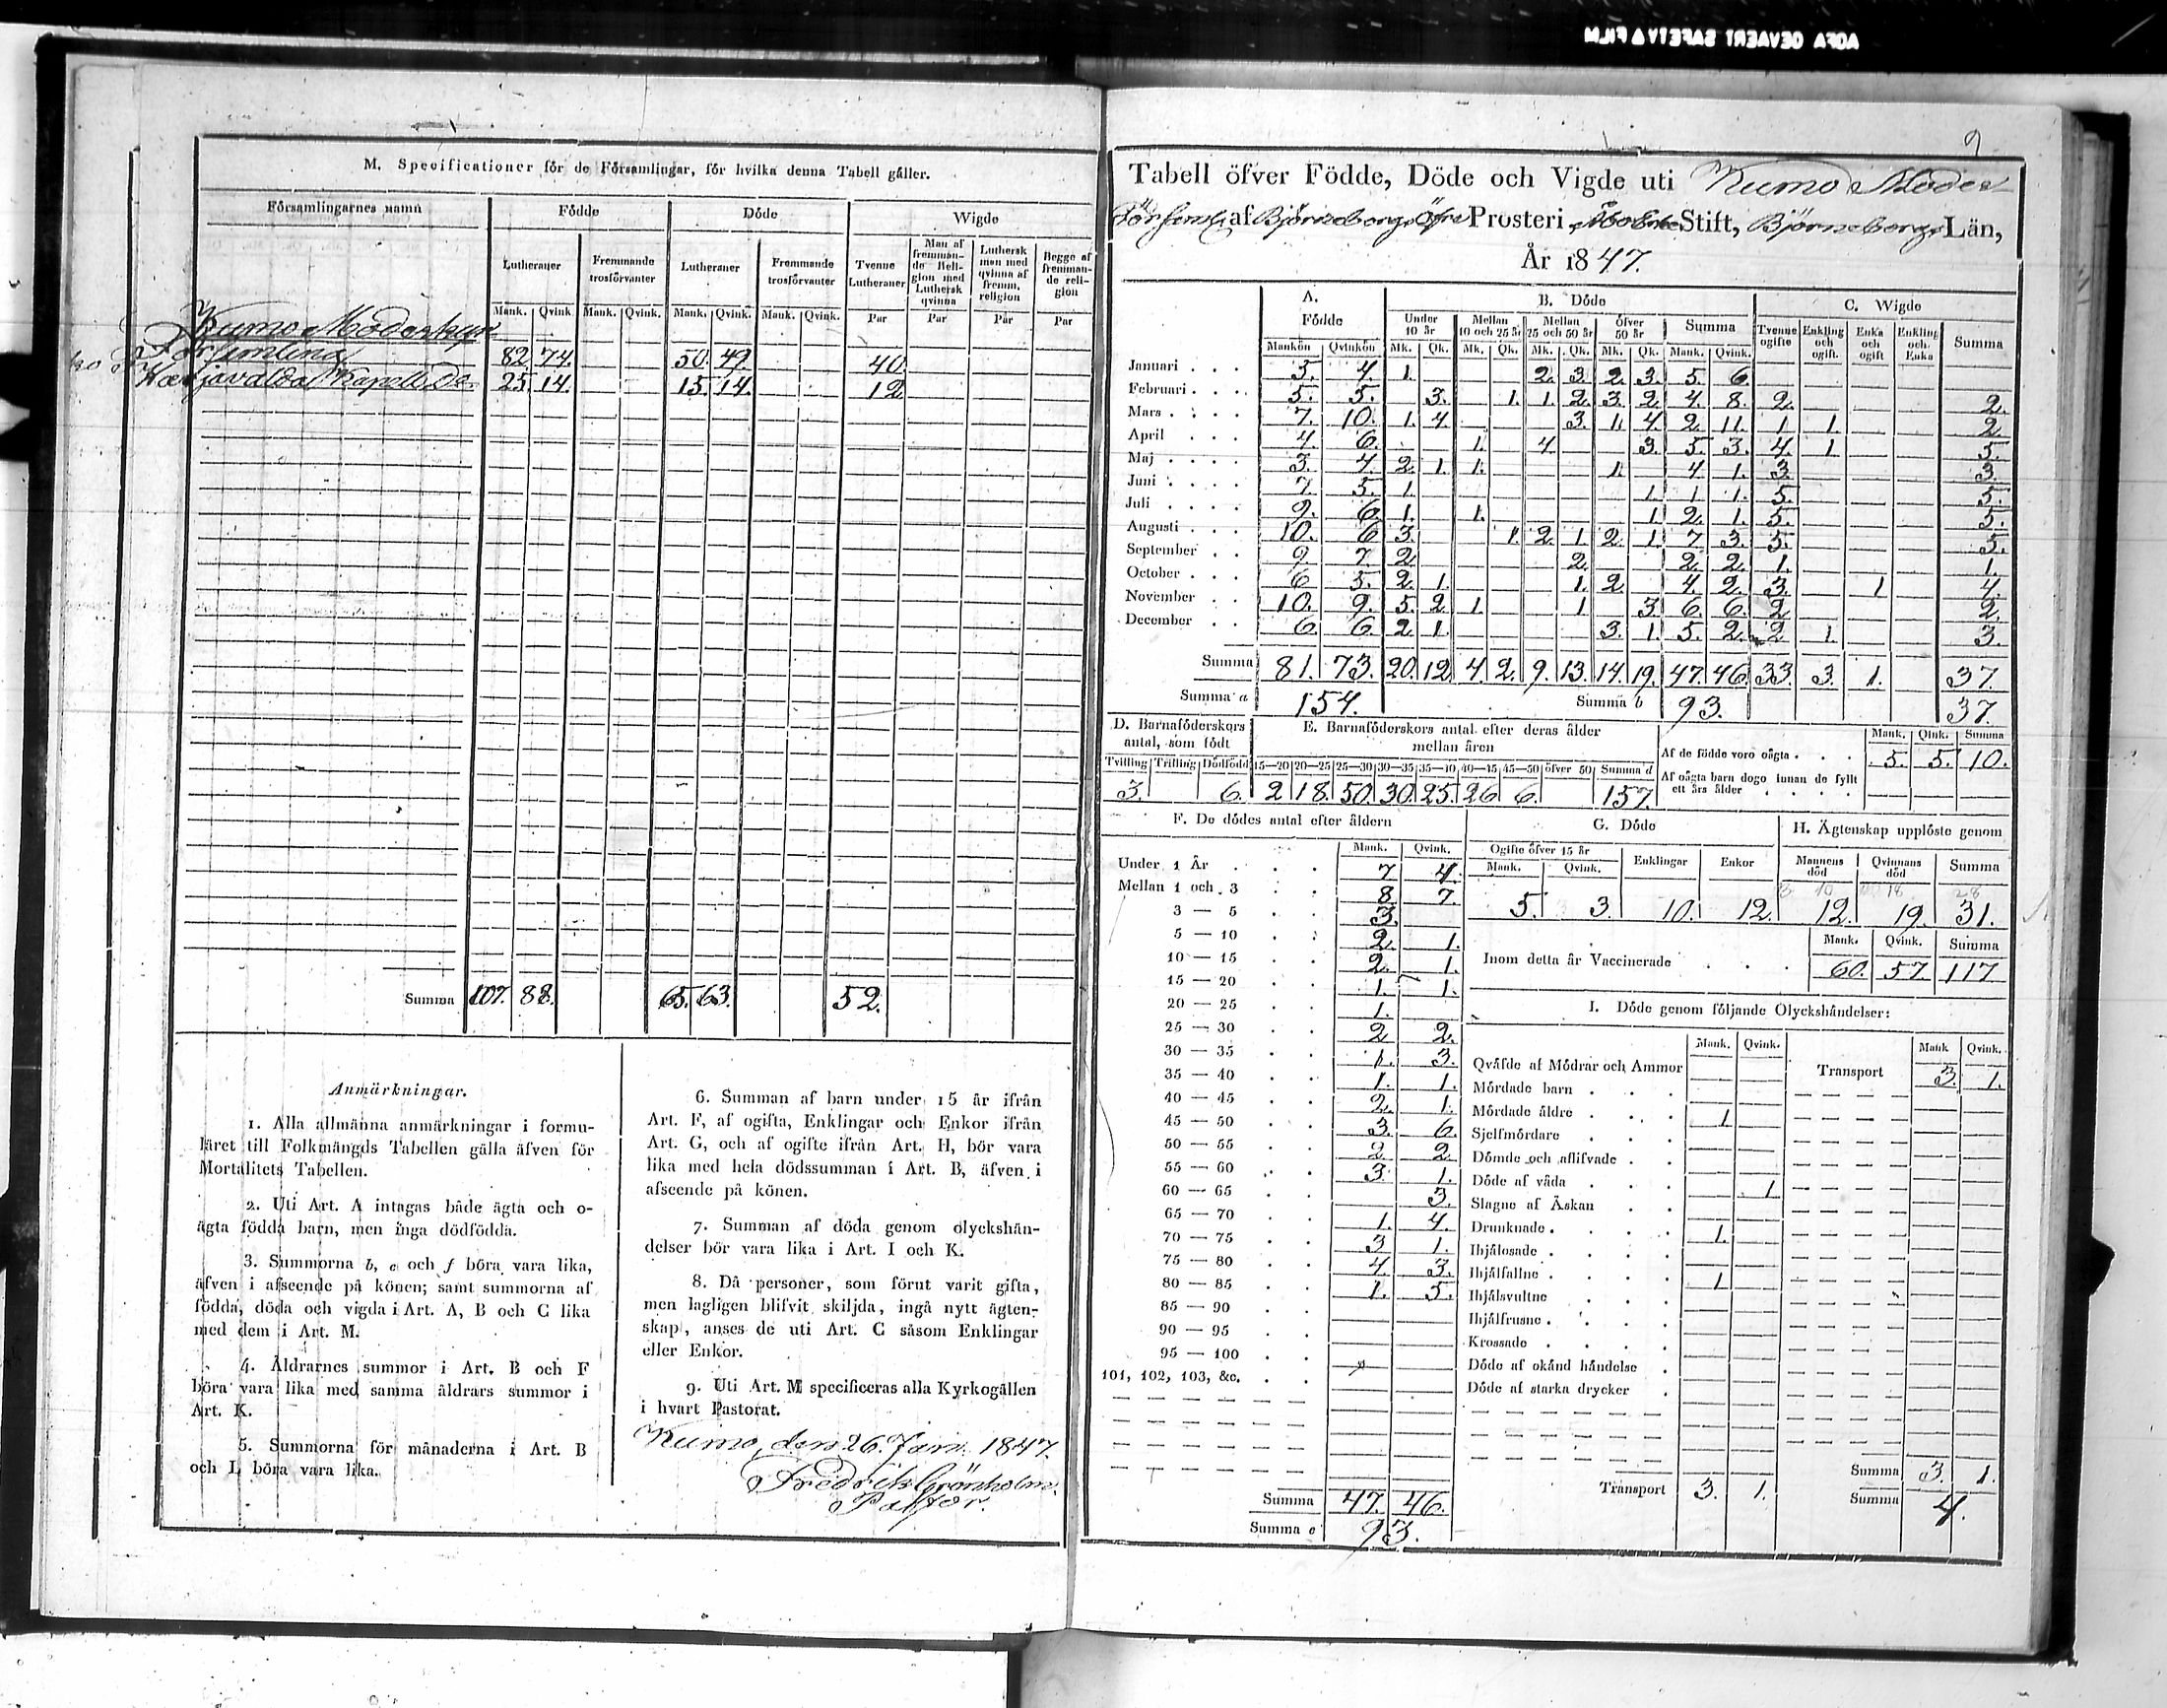 M. Specificationer för de Församlingar, för hvilka denna Tabell gäller.
Församlingarnes namn | Födde | Döde | Wigde
Lutheraner | Fremmande trosförvanter | Lutheraner | Fremmande trosförvanter | Tvenne Lutheraner | Man af fremmande Religion med Luthersk qvinna | Luthersk man med qvinna af fremm. religion | Begge af fremmande religion
Mank. | Qvink. | Mank. | Qvink. | Mank. | Qvink. | Mank. | Qvink. | Par | Par | Par | Par
Kumo Moderkyr
Församling 82. 74. 50. 49. 40.
Kapell 25. 14. 15. 14. 12
Summa 107. 88. 65. 63. 52.
Anmärkningar.
1. Alla allmänna anmärkningar i formu-
läret till Folkmängds Tabellen gälla äfven för
Mortalitets Tabellen.
2. Uti Art. A intagas både ägta och o-
ägta födda barn, men inga dödfödda.
3. Summorna b, e och f böra vara lika,
äfven i afseende på könen; samt summorna af
födda, döda och vigda i Art. A, B och C lika
med dem i Art. M.
4. Åldrarnes summor i Art. B och F
böra vara lika med samma åldrars summor i
Art. K.
5. Summorna för månaderna i Art. B
och L böra vara lika.
6. Summan af barn under 15 år ifrån
Art. F, af ogifta, Enklingar och Enkor ifrån
Art. G, och af ogifte ifrån Art. H, bör vara
lika med hela dödssumman i Art. B, äfven i
afseende på könen.
7. Summan af döda genom olyckshän-
delser bör vara lika i Art. I och K.
8. Då personer, som förut varit gifta,
men lagligen blifvit skiljda, ingå nytt ägten-
skap, anses de uti Art. C såsom Enklingar
eller Enkor.
9. Uti Art. M specificeras alla Kyrkogällen
i hvart Pastorat.
Kumo, den 26. Jan. 1847.
Fredrik Grönholm.
Pastor.
Tabell öfver Födde, Döde och Vigde uti Kumo Moder
Församl. af Björneborgs Öfre Prosteri, Åbo Stift, Björneborgs Län,
År 1847.
A. Födde | B. Döde | C. Wigde
Under 10 år | Mellan 10 och 25 år | Mellan 25 och 50 år | Öfver 50 år | Summa | Tvenne ogifte | Enkling och ogift. | Enka och ogift | Enkling och Enka | Summa
Mankön | Qvinkön | Mk. | Qk. | Mk. | Qk. | Mk. | Qk. | Mk. | Qk. | Mank. | Qvink.
Januari 3. 4. 1. 2. 3. 2. 3. 5. 6.
Februari 5. 5. 3. 1. 1. 2. 3. 2. 4. 8. 2. 2.
Mars 7. 10. 1. 4. 3. 1. 4. 2. 11. 1 1. 2.
April 4. 6. 1. 4. 3. 5. 3. 4. 1 5.
Maj 3. 4. 2. 1. 1. 1. 4. 1. 3. 3.
Juni 7. 5. 1. 1. 1. 1. 5. 5.
Juli 9. 6. 1. 1. 1 2. 1. 5. 5.
Augusti 10. 6 3. 1. 2. 1. 2. 1. 7. 3. 5. 5.
September 9. 7. 2 2. 2. 2. 1. 1.
October 6 5. 2. 1. 1. 2. 4. 2. 3. 1 4.
November 10. 9. 5. 2. 1. 1. 3. 6. 6. 2 2.
December 6. 6. 2. 1. 3. 1. 5. 2. 2. 1. 3.
Summa 81. 73. 20. 12 4. 2. 9. 13. 14. 19. 47. 46. 33. 3. 1. 37.
Summa a 154. Summa b 93. 37.
D. Barnaföderskors antal, som födt | E. Barnaföderskors antal efter deras ålder mellan åren
Tvilling | Trilling | Dödfödd | 15—20 | 20—25 | 25—30 | 30—35 | 35—40 | 40—45 | 45—50 | öfver 50 | Summa d
3. 6. 2 18. 50. 30. 25. 26 6. 157.
Mank. | Qink. | Summa
Af de födde voro oägta . . . 5. 5. 10.
Af oägta barn dogo innan de fyllt ett års ålder . . . .
F. De dödes antal efter åldern
Mank. | Qvink.
Under 1 År 7 4.
Mellan 1 och 3 8. 7.
3 — 5 3.
5 — 10 2. 1.
10 — 15 2. 1.
15 — 20 1. 1.
20 — 25 1.
25 — 30 2 2.
30 — 35 1. 3.
35 — 40 1. 1.
40 — 45 2. 1.
45 — 50 3. 6.
50 — 55 2. 2.
55 — 60 3. 1.
60 — 65 3.
65 — 70 1. 4.
70 — 75 3 1.
75 — 80 4. 3.
80 — 85 1. 5.
85 — 90
90 — 95
95 — 100
101, 102, 103, &c.
Summa 47. 46.
Summa e 93.
G. Döde | H. Ägtenskap upplöste genom
Ogifte öfver 15 år | Enklingar | Enkor | Mannens död | Qvinnans död | Summa
Mank. | Qvink.
10 18 28
5. 3. 10. 12. 12. 19. 31.
Mank. | Qvink. | Summa
Inom detta år Vaccinerade . . . 60. 57. 117
I. Döde genom följande Olyckshändelser:
Mank. | Qvink. | Mank | Qvink.
Qväfde af Mödrar och Ammor
Transport 3. 1.
Mördade barn
Mördade äldre 1
Sjelfmördare
Dömde och aflifvade
Döde af våda 1
Slagne af Åskan
Drunknade 1.
Ihjälosade
Ihjälfallne 1
Ihjälsvultne
Ihjälfrusne
Krossade
Döde af okänd händelse
Döde af starka drycker
Transport 3. 1.
Summa 3. 1.
Summa 4.